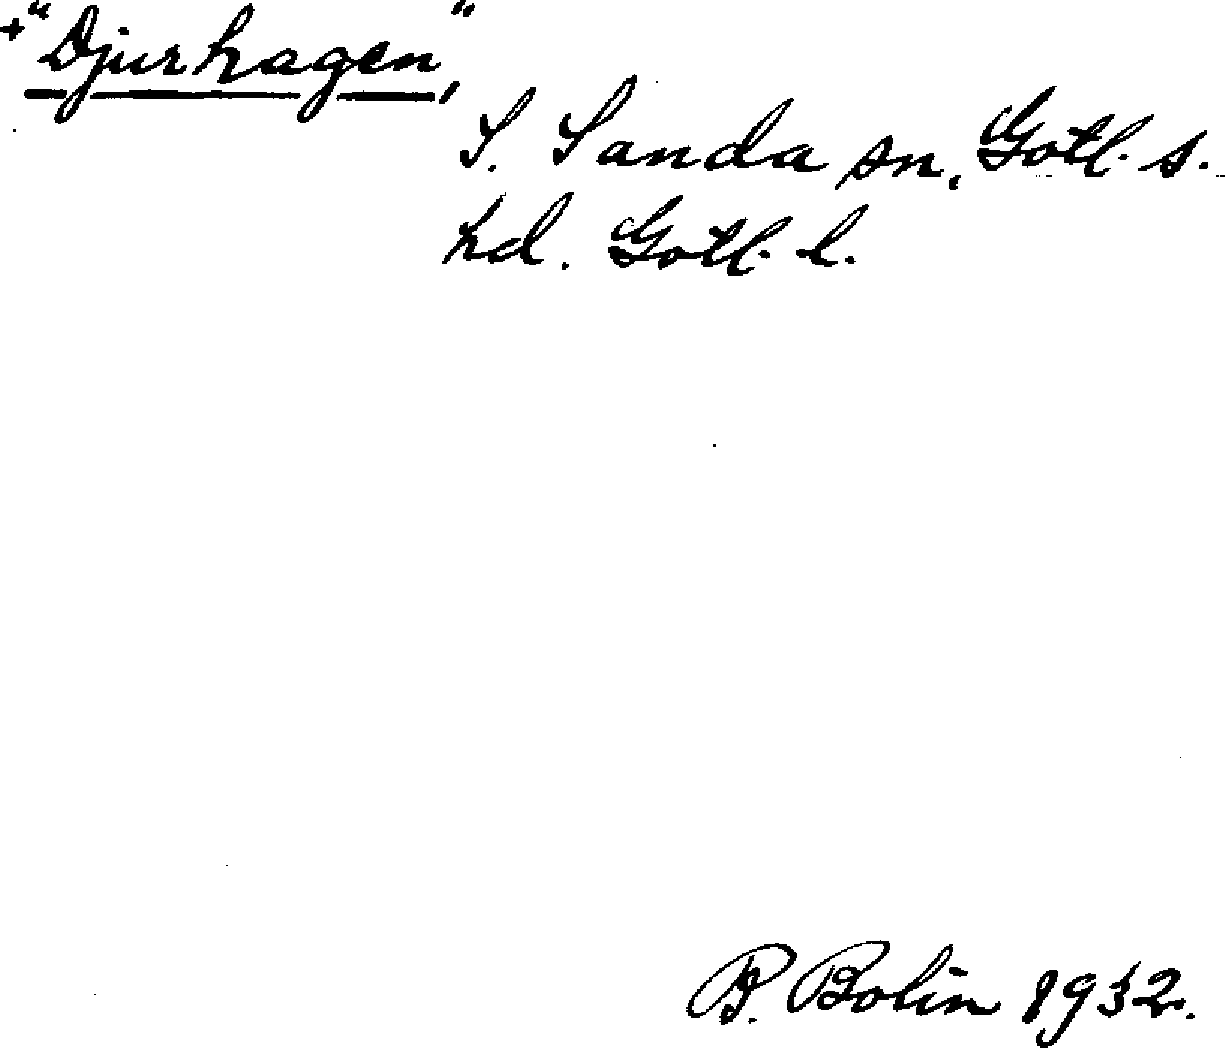 +"Djurhagen,"
S. Sanda sn, Gotl. s.
hd. Gotl. l.
B. Bolin 1932.